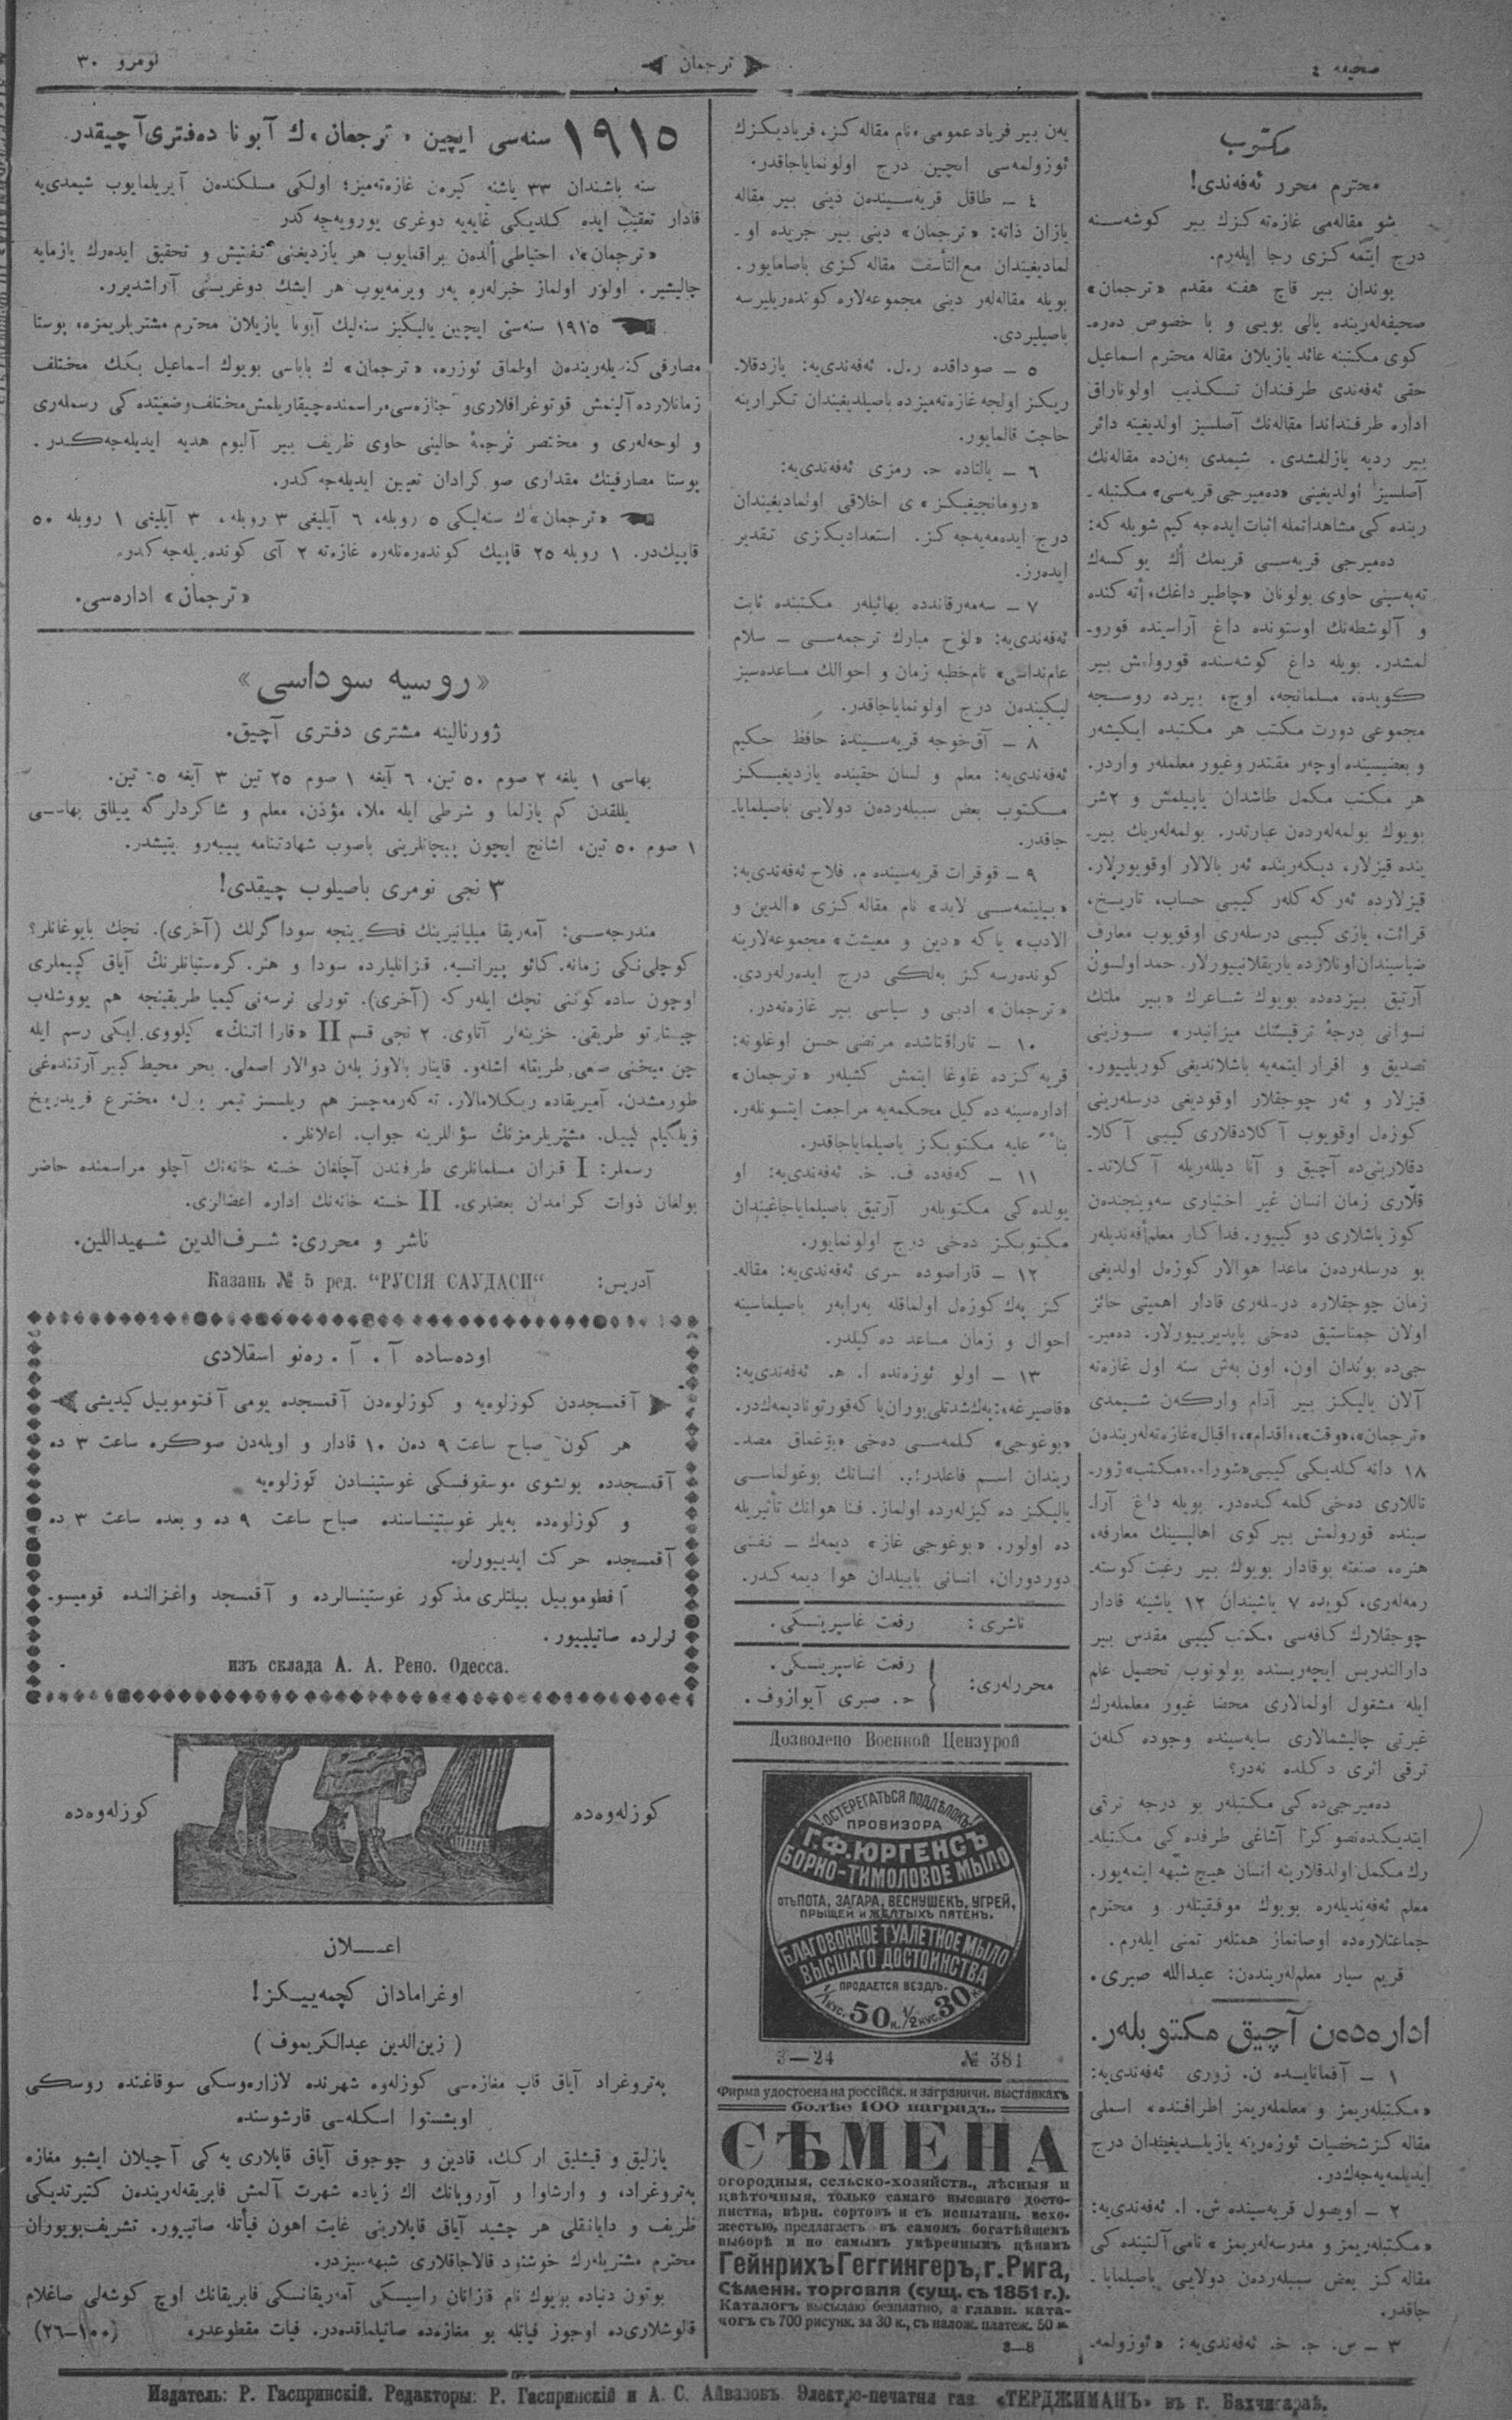 صحیفه ٤
ترجمان
نومرو ٣٠
مكتوب
محترم محرر ئەفەندی!
شو مقالەمی غازەتەكزك بیر كوشەسنە
درج ایتمەكزی رجا ایلەرم.
بوندان بیر قاچ هفتە مقدم «ترجمان»
صحیفەلەریندە یالی بویی و با خصوص دەرە-
كوی مكتبنە عائد یازیلان مقالە محترم اسماعیل
حقی ئەفەندی طرفندان تكذیب اولوناراق
ادارە طرفنداندا مقالەنك آصلسیز اولدیغینە دائر
بیر ردیە یازلمشدی. شیمدی بەندە مقالەنك
آصلسیز اولدیغینی «دەمیرجی قریەسی» مكتبلە-
ریندەكی مشاهداتملە اثبات ایدەجەكیم شویلەكە:
دەمیرجی قریەسی قریمك أك یوكسەك
تەپەسینی حاوی بولونان «چاطیر داغك» أتەكندە
و آلوشطەنك اوستوندە داغ آراسیندە قورو-
لمشدر. بویلە داغ كوشەسندە قورولمش بیر
كویدە، مسلمانجە، اوچ، بیردە روسجە
مجموعی دورت مكتب هر مكتبدە ایكیشەر
و بعضیسیندە اوچەر مقتدر و غیور معلملەر واردر.
هر مكتب مكمل طاشدان یاپیلمش و ٢شر
بویوك بولمەلەردەن عبارتدر. بولمەلەریك بیر-
یندە قیزلار، دیكەریندە ئەر بالالار اوقویورلار.
قیزلاردە ئەركەكلەر كیبی حساب، تاریخ،
قرائت، یازی كیبی درسلەری اوقویوب معارف
ضیاسیندان اونلاردە یاریقلانیورلار. حمد اولسون
آرتیق بیزدەدە بویوك شاعرك «بیر ملتك
نسوانی درجۀ ترقیسنك میزانیدر» سوزینی
تصدیق و اقرار ایتمەیە باشلاندیغی كوریلیور.
قیزلار و ئەر چوجقلار اوقودیغی درسلەرینی
كوزەل اوقویوب آكلادقلاری كیبی آكلا-
دقلارینی دە آچیق و آنا دیللەریلە آكلاتد-
قلاری زمان انسان غیر اختیاری سەوینجندەن
كوز یاشلاری دوكیور. فداكار معلم أفەندیلەر
بو درسلەردەن ماعدا هوالار كوزەل اولدیغی
زمان چوجقلارە درسلەری قادار اهمیتی حائز
اولان جمناستیق دەخی یاپدیرییورلار. دەمیر-
جی دە بوندان اون، اون بەش سنە اول غازەتە
آلان یالیكز بیر آدام واركەن شیمدی
«ترجمان»، «وقت»، «اقدام»، «اقبال» غازەتەلەریندەن
١٨ دانە كلدیكی كیبی «شورا»، «مكتب» ژور-
ناللاری دەخی كلمەكدەدر. بویلە داغ آرا-
سیندە قورولمش بیر كوی اهالیسینك معارفە،
هنرە، صنعتە بوقادار بویوك بیر رغبت كوستە-
رمەلەری، كویدە ٧ یاشیندان ١٢ یاشینە قادار
چوجقلارك كافەسی مكتب كیبی مقدس بیر
دارالتدریس ایچەریسندە بولونوب تحصیل علم
ایلە مشغول اولمالاری محضا غیور معلملەرك
غیرتی چالیشمالاری سایەسیندە وجودە كلەن
ترقی اثری دكلدە نەدر؟
دەمیرجی دەكی مكتبلەر بو درجە ترقی
ایتدیكدەنصوكرا آشاغی طرفدەكی مكتبلە-
رك مكمل اولدقلارینە انسان هیچ شبهە ایتمەیور.
معلم ئەفەندیلەرە بویوك موفقیتلەر و محترم
جماعتلارەدە اوصانماز همتلەر تمنی ایلەرم.
قریم سیار معلملەریندەن: عبدالله صبری.
ادارەدەن آچیق مكتوبلەر.
١ – آقمانایدە ن. زوری ئەفەندییە:
«مكتبلەریمز و معلملەریمز اطرافندە» اسملی
مقالەكز شخصیات ئوزەرینە یازیلدیغیندان درج
ایدیلمەیەجەكدر.
٢ – اویصول قریەسیندە ش. ا. ئەفەندییە:
«مكتبلەریمز و مدرسەلەریمز» نامی آلتیندەكی
مقالەكز بعض سببلەردەن دولایی باصیلمایا-
جاقدر.
٣ – س. ج. خ. ئەفەندییە: «ئوزولمە-
یەن بیر فریاد عمومی» نام مقالەكز، فریادیكزك
ئوزولمەسی ایچین درج اولونمایاجاقدر.
٤ – طاقل قریەسیندەن دینی بیر مقالە
یازان ذاتە: «ترجمان» دینی بیر جریدە او-
لمادیغیندان مع التأسف مقالەكزی باصامایور.
بویلە مقالەلەر دینی مجموعەلارە كوندەریلیرسە
باصیلیردی.
٥ – صوداقدە ر.ل. ئەفەندییە: یازدقلا-
ریكز اولجە غازەتەمیزدە باصیلدیغیندان تكرارینە
حاجت قالمایور.
٦ – یالتادە ح. رمزی ئەفەندییە:
«رومانجیغیكز»ی اخلاقی اولمادیغیندان
درج ایدەمەیەجەكز. استعدادیكزی تقدیر
ایدەرز.
٧ – سەمەرقانددە بهائیلەر مكتبندە ثابت
ئەفەندییە: «لوح مبارك ترجمەسی – سلام
عام نداسی» نام خطبە زمان و احوالك مساعدەسیز
لیكیندەن درج اولونمایاجاقدر.
٨ – آق خوجە قریەسیندە حافظ حكیم
ئەفەندییە: معلم و لسان حقیندە یازدیغیكز
مكتوب بعض سببلەردەن دولایی باصیلمایا-
جاقدر.
٩ – قوقرات قریەسیندە م. فلاح ئەفەندییە:
«بیلینمەسی لابد» نام مقالەكزی «الدین و
الادب» یاكە «دین و معیشت» مجموعەلارینە
كوندەرسەكز بەلكی درج ایدەرلەردی.
«ترجمان» ادبی و سیاسی بیر غازەتەدر.
١٠ – تاراقتاشدە مرتضی حسن اوغلونە:
قریەكزدە غاوغا ایتمش كشیلەر «ترجمان»
ادارەسینە دەكیل محكمەیە مراجعت ایتسونلەر.
بناءً علیە مكتوبكز باصیلمایاجاقدر.
١١ – كەفەدە ف. خ. ئەفەندییە: او
یولدەكی مكتوبلەر آرتیق باصیلمایاجاغیندان
مكتوبكز دەخی درج اولونمایور.
١٢ – قاراصودە سری ئەفەندییە: مقالە-
كز پەك كوزەل اولماقلە بەرابەر باصیلماسینە
احوال و زمان مساعد دەكیلدر.
١٣ – اولو ئوزەندە ا. ه. ئەفەندییە:
«قاصیرغە»: پەك شدتلی بوران یاكە فورتونا دیمەكدر.
«بوغوجی» كلمەسی دەخی «بوغماق مصد-
ریندان اسم فاعلدر!.. انسانك بوغولماسی
یالیكز دەكیزلەردە اولماز. فنا هوانك تأثیریلە
دە اولور. «بوغوجی غاز» دیمەك – نفسی
دوردوران، انسانی باییلدان هوا دیمەكدر.
ناشری: رفعت غاسپرینسكی.
محررلەری: رفعت غاسپرینسكی.
ح. صبری آیوازوف.
Дозволено Военной Цензурой
ОСТЕРЕГАТЬСЯ ПОДДѢЛОКЪ!
ПРОВИЗОРА
Г. Ф. ЮРГЕНСЪ
БОРНО-ТИМОЛОВОЕ МЫЛО
отъ ПОТА, ЗАГАРА, ВЕСНУШЕКЪ, УГРЕЙ,
ПРЫЩЕЙ и ЖЕЛТЫХЪ ПЯТЕНЪ.
БЛАГОВОННОЕ ТУАЛЕТНОЕ МЫЛО
ВЫСШАГО ДОСТОИНСТВА
ПРОДАЕТСЯ ВЕЗДѢ.
1/1 кус. 50 к. 1/2 кус. 30 к.
3—24 № 381
Фирма удостоена на россійск. и заграничн. выставкахъ
болѣе 100 наградъ.
СѢМЕНА
огородныя, сельско-хозяйств., лѣсныя и
цвѣточныя, только самаго высшаго досто-
инства, вѣрн. сортовъ и съ испытанн. всхо-
жестью, предлагаетъ въ самомъ богатѣйшемъ
выборѣ и по самымъ умѣреннымъ цѣнамъ
Гейнрихъ Геггингеръ, г. Рига,
Сѣменн. торговля (сущ. съ 1851 г.).
Каталогъ высылаю безплатно, а главн. ката-
логъ съ 700 рисунк. за 30 к., съ налож. платеж. 50 к.
8—8
١٩١٥ سنەسی ایچین «ترجمان»ك آبونا دەفتری آچیقدر.
سنە باشندان ٣٣ یاشنە كیرەن غازەتەمیز؛ اولكی مسلكندەن آیریلمایوب شیمدییە
قادار تعقیب ایدە كلدیكی غایەیە دوغری یورویەجەكدر
«ترجمان»، احتیاطی ألدەن براقمایوب هر یازدیغنی تفتیش و تحقیق ایدەرك یازمایە
چالیشیر. اولور اولماز خبرلەرە یەر ویرمەیوب هر ایشك دوغریسنی آراشدیرر.
١٩١٥ سنەسی ایچین یالیكیز سنەلیك آبونا یازیلان محترم مشتریلریمزە، پوستا
مصارفی كندیلەریندەن اولماق ئوزرە، «ترجمان»ك باباسی بویوك اسماعیل بكك مختلف
زمانلاردە آلینمش فوتوغرافلاری و جنازەسی مراسمندە چیقاریلمش مختلف وضعیتدەكی رسملەری
و لوحەلەری و مختصر ترجمۀ حالینی حاوی ظریف بیر آلبوم هدیە ایدیلەجەكدر.
پوستا مصارفینك مقداری صوكرادان تعیین ایدیلەجەكدر.
«ترجمان»ك سنەلیكی ٥ روبلە، ٦ آیلیغی ٣ روبلە، ٣ آیلیغی ١ روبلە ٥٠
قاپیكدر. ١ روبلە ٢٥ قاپیك كوندەرەنلەرە غازەتە ٢ آی كوندەریلەجەكدر.
«ترجمان» ادارەسی.
«روسیە سوداسی»
ژورنالینە مشتری دفتری آچیق.
بهاسی ١ یلغە ٢ صوم ٥٠ تین، ٦ آیغە ١ صوم ٢٥ تین ٣ آیغە ٦٥ تین.
یللقدن كم یازلما و شرطی ایلە ملا، مؤذن، معلم و شاكردلرگە ییللق بهاسی
١ صوم ٥٠ تین، اشانچ ایچون پیچاتلرینی باصوب شهادتنامە ییبەرو یتیشدر.
٣ نجی نومری باصیلوب چیقدی!
مندرجەسی: آمەریقا میلیانیرینك فكرینچە سوداگرلك (آخری). نچك بایوغانلر؟
كوچلی نكی زمانە. كاثو پیرانسیە. قزانلیاردە سودا و هنر. كرەستیانلرنك آیاق كییملری
اوچون سادە كوننی نچك ایلەرگە (آخری). تورلی نرسەنی كیمیا طریقینچە هم یووشلەب
چیستارتو طریقی. خزینەلر آتاوی. ٢ نجی قسم II «قارا اتنك» كیلووی ایكی رسم ایلە
چن میخنی صنعی طریقلە اشلەو. قاینار بالاوز یلەن دوالار اصملی. بحر محیط كبیر آرتندەغی
طورمشدن. آمیریقادە ریكلامالار. تەگەرمەچسز هم ریلسسز تیمر یول، مخترع فریدریخ
ویلگیلم لیبل. مشتریلرمزنك سؤاللرینە جواب. اعلانلر.
رسملر: I قزان مسلمانلری طرفندن آچلغان خستە خانەنك آچلو مراسمندە حاضر
بولغان ذوات كرامدان بعضلری. II خستە خانەنك ادارە اعضالری.
ناشر و محرری: شرف الدین شهیداللین.
آدریس: Казань № 5 ред. “РУСІЯ САУДАСИ“
اودەسادە آ. آ. رەنو اسقلادی
آقمسجددن كوزلوەیە و كوزلوەدن آقمسجدە یومی آفتوموبیل كیدیشی
هر كون صباح ساعت ٩ دەن ١٠ قادار و اویلەدن صوكرە ساعت ٣ دە
آقمسجددە بولشوی موسقوفسكی غوستینسادن كوزلوەیە
و كوزلوەدە بەیلر غوستینساسندە صباح ساعت ٩ دە و بعدە ساعت ٣ دە
آقمسجدە حركت ایدییورلر.
آفطوموبیل بیلتلری مذكور غوستینسالردە و آقمسجد واغزالندە قومیسو-
نرلردە صاتیلیور.
изъ склада А. А. Рено. Одесса.
كوزلەوەدە
كوزلەوەدە
اعلان
اوغرامادان كچمەییكز!
(زین الدین عبدالكریموف)
پەتروغراد آیاق قاب مغازەسی كوزلەوە شهرندە لازارەوسكی سوقاغندە روسكی
اوبشستوا اسكلەسی قارشوسندە
یازلیق و قیشلیق ارككك، قادین و چوجوق آیاق قابلاری یەكی آچیلان ایشبو مغازە
پەتروغراد، و وارشاوا و آوروپانك اك زیادە شهرت آلمش فابریقەلەریندەن كتیرتدیكی
ظریف و دایانقلی هر چشید آیاق قابلارینی غایت اهون فیأتلە صاتیور. تشریف بویوران
محترم مشتریلەرك خوشنود قالاجاقلاری شبهەسیزدر.
بوتون دنیادە بویوك نام قازانان راسیسكی آمەریقانسكی فابریقانك اوچ كوشەلی صاغلام
قالوشلاری دە اوجوز فیاتلە بو مغازەدە صاتیلماقدەدر. فیات مقطوعدر. (٢٦–١٠٠)
Издатель: Р. Гаспринскій. Редакторы: Р. Гаспринскій и А. С. Айвазовъ Электро-печатня газ. «ТЕРДЖИМАНЪ» въ г. Бахчисараѣ.